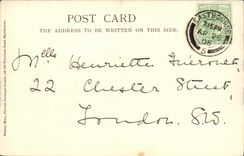 POST CARD
THE ADDRESS TO BE WRITTEN ON THIS SIDE.
EASTBOURNE
7.15 PM
AP 25
Mlles Henriette
22 Chester Street
London. S.W.